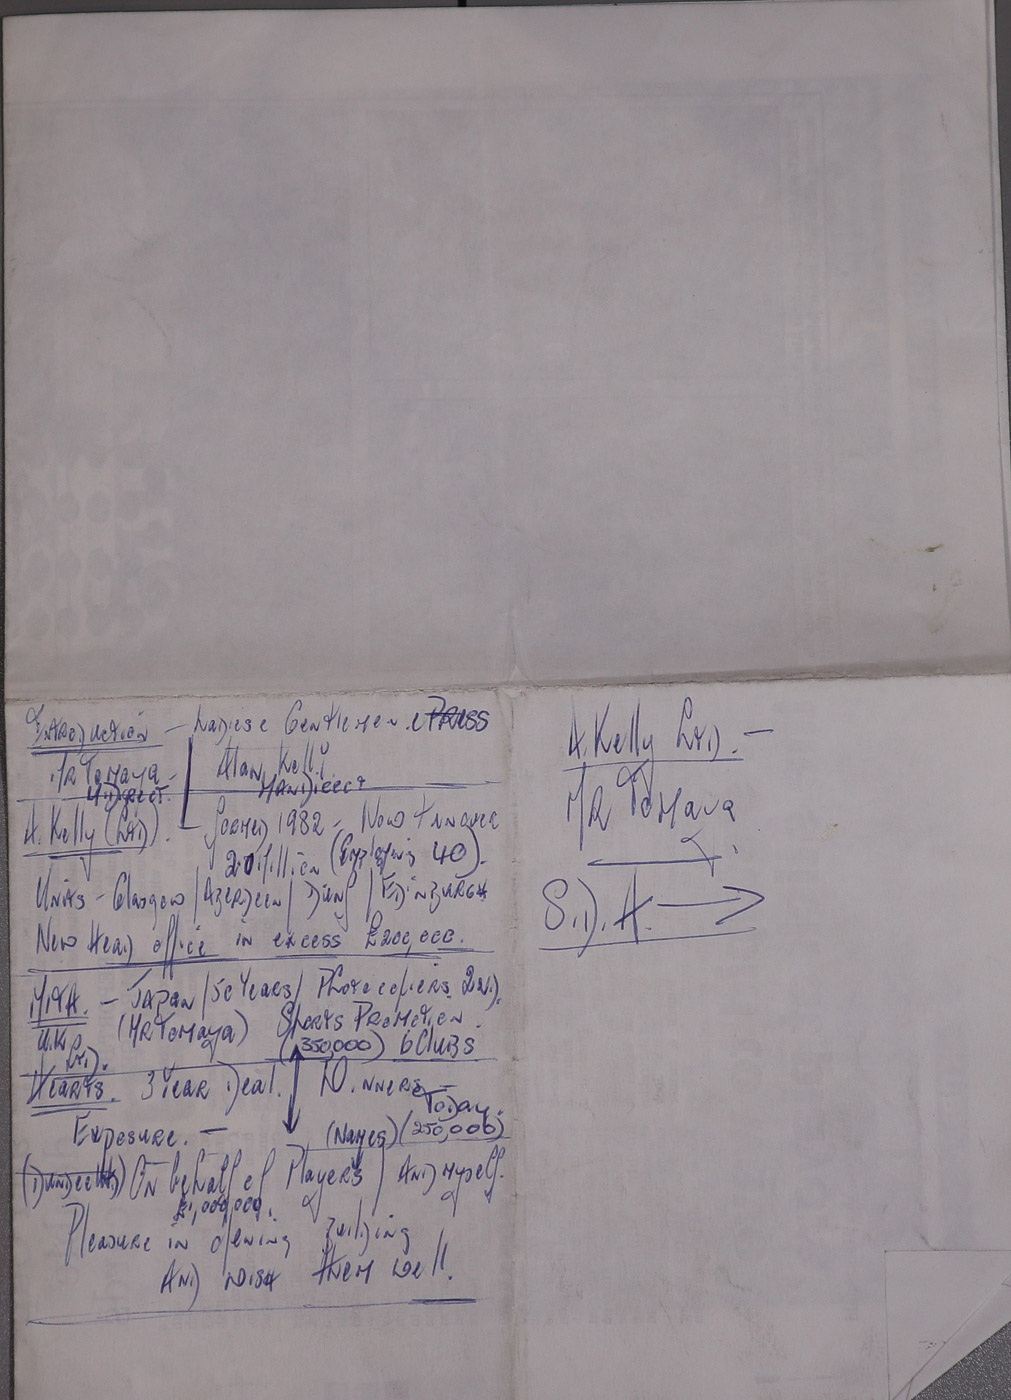 Introduction - Ladies & Gentlemen. & PRESS
Mr Tomaya - Alan Kelly.
M. Direct. Man Direct
A. Kelly (Ltd). - Formed 1982 - Now turnover
2 Million (Employing 40).
Units - Glasgow / Aberdeen / Dunf / Edinburgh
New Head office in excess £200,000.
MITA. - Japan / 50 Years / Photocopiers 2nd.
U.K. (Mr Tomaya) Sports Promotion.
Ltd. (350,000) 6 Clubs
Hearts. 3 Year Deal. Winners -
Today.
Exposure. - (Names) (250,000)
On behalf of Players / And Myself.
£1,000,000.
Pleasure in opening Building
And wish them well.
A. Kelly Ltd. -
Mr Tomaya
S.D.A. →